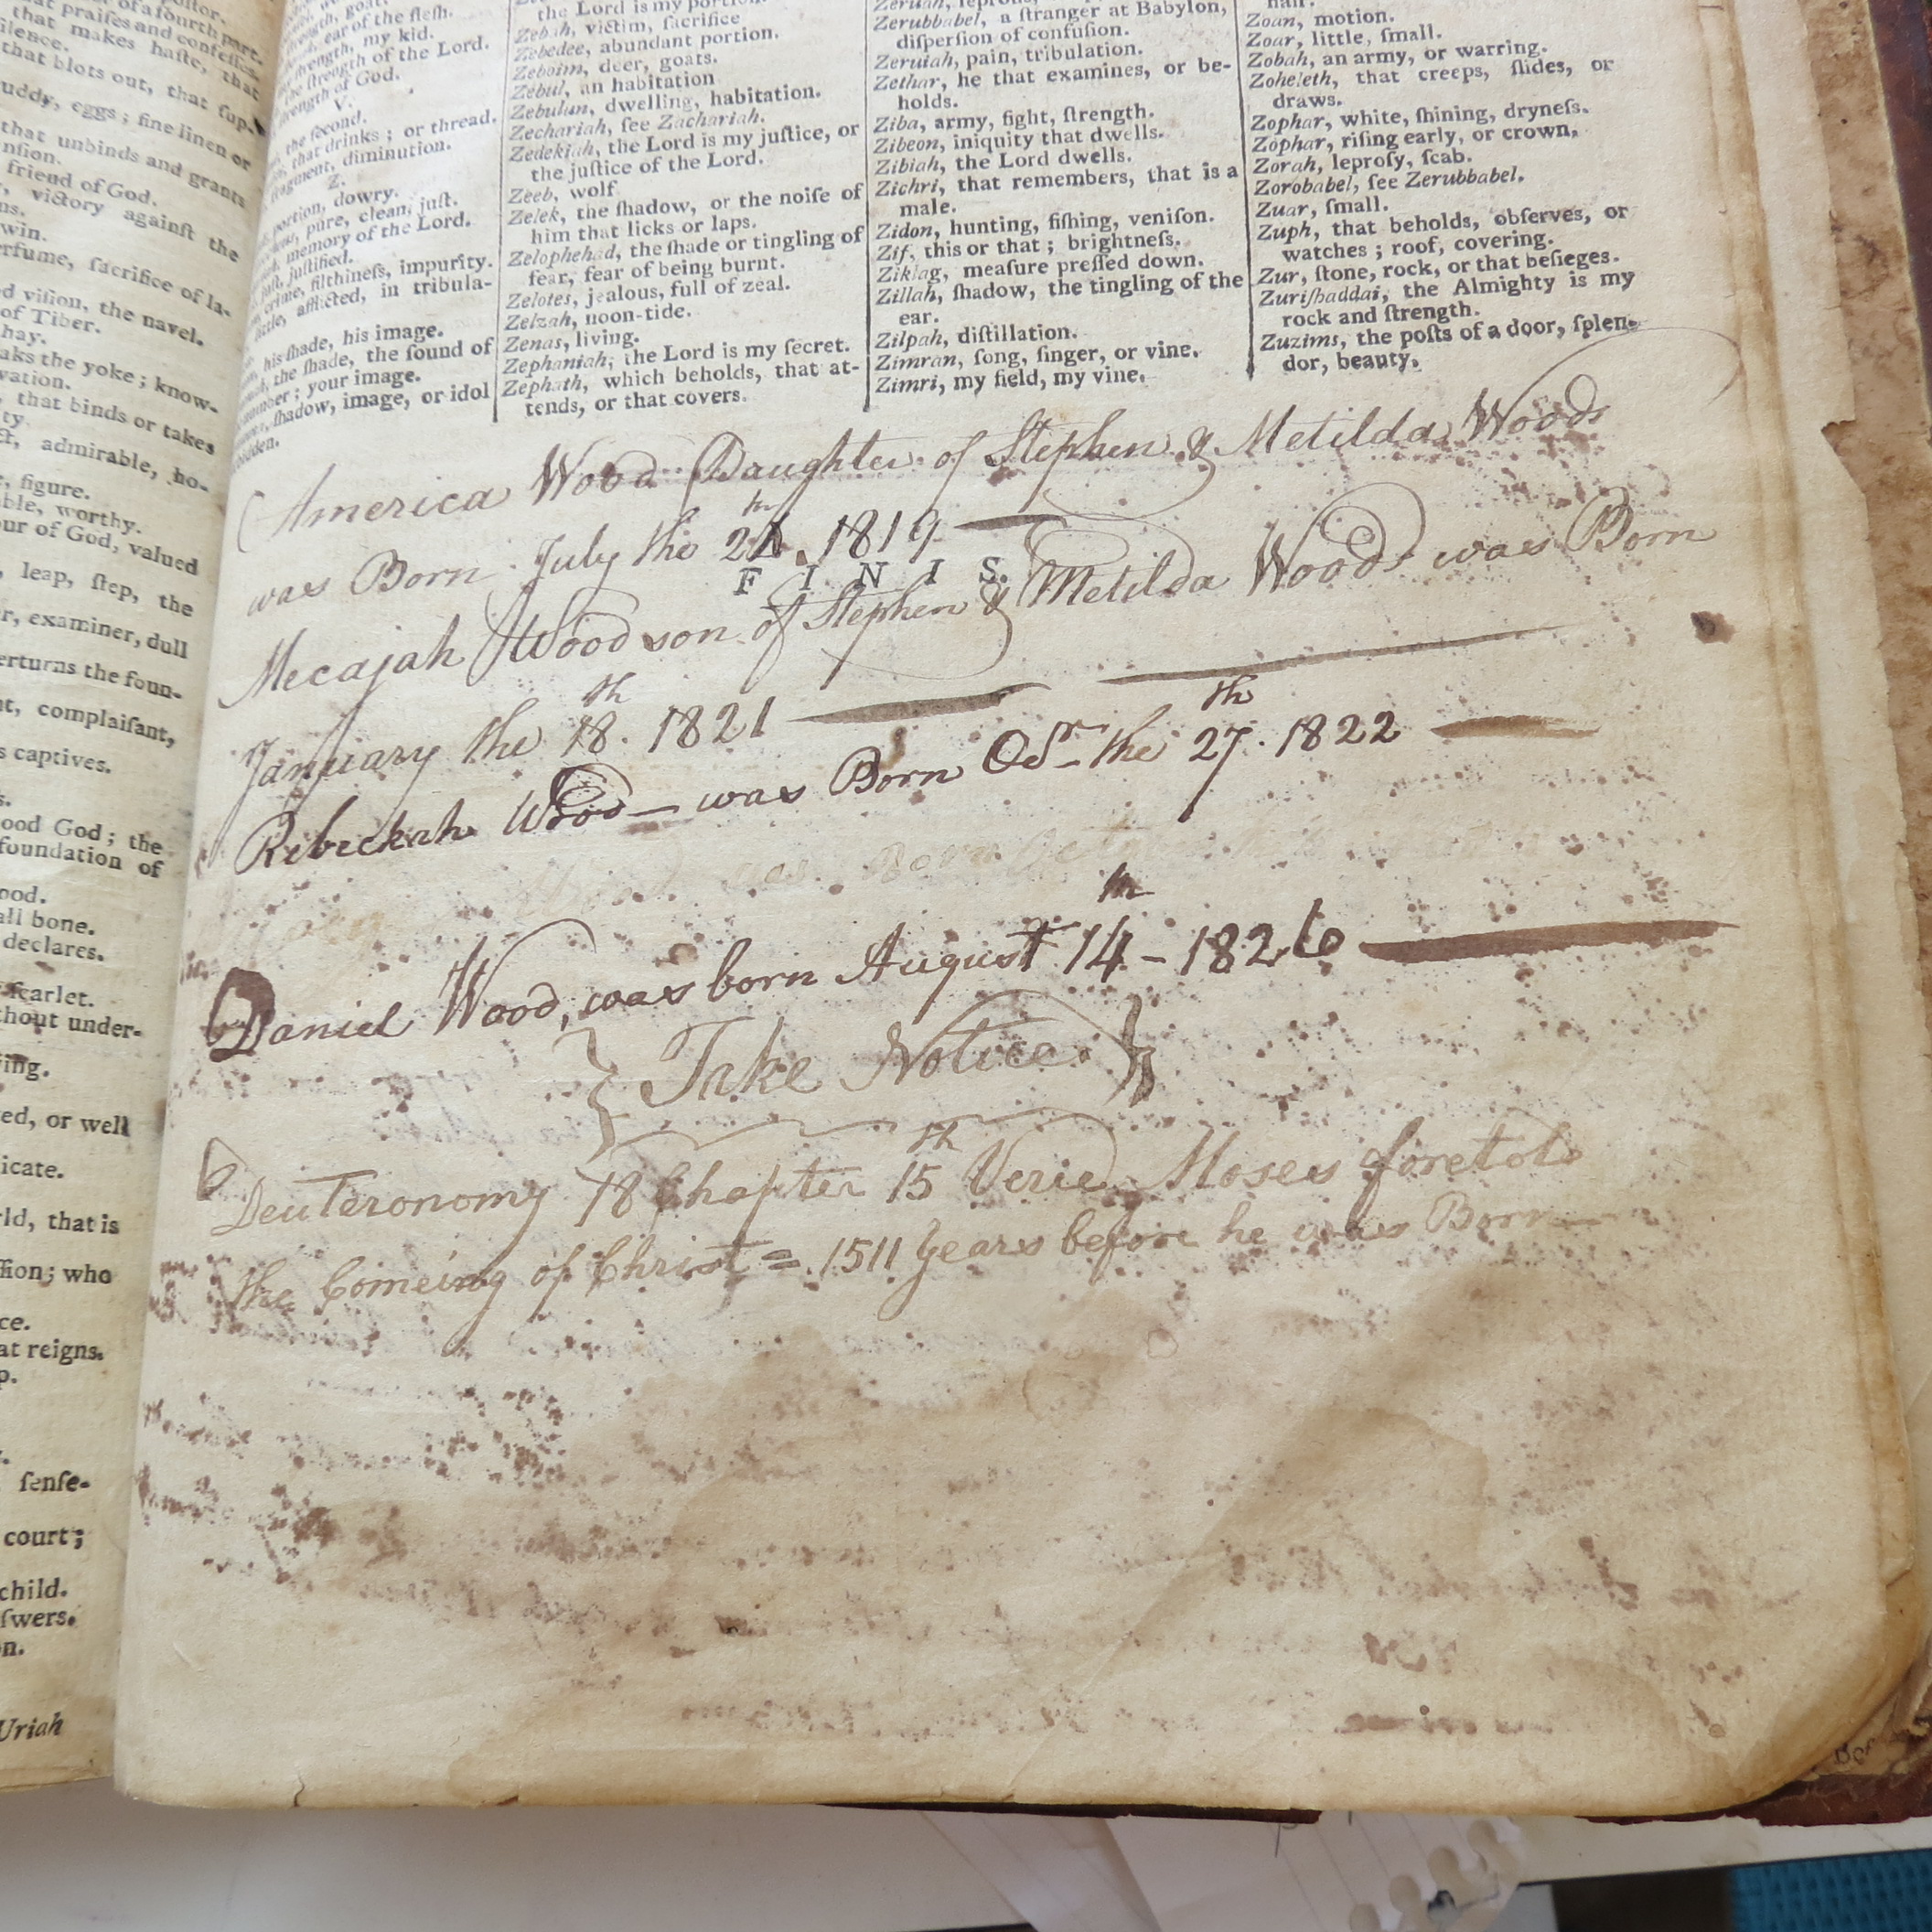 that praises and confesses.
that makes haste, that
silence.
that blots out, that sup-
ruddy, eggs; fine linen or
that unbinds and grants
friend of God.
victory against the
win.
perfume, sacrifice of la-
ed vision, the navel.
of Tiber.
hay.
breaks the yoke; know-
that binds or takes
admirable, ho-
figure.
able, worthy.
our of God, valued
leap, ſtep, the
examiner, dull
erturns the foun-
complaiſant,
s captives.
ood God; the
foundation of
ood.
all bone.
declares.
ſcarlet.
thout under-
ed, or well
icate.
ld, that is
who
at reigns.
ſenſe-
court;
child.
ſwers.
Uriah
ear of the fleſh.
ſtrength, my kid.
the ſtrength of the Lord.
ſtrength of God.
V.
the ſecond.
that drinks; or thread.
fragment, diminution.
Z.
portion, dowry.
pure, clean, juſt.
memory of the Lord.
juſt, juſtified.
crime, filthineſs, impurity.
little, afflicted, in tribula-
his ſhade, his image.
the ſhade, the ſound of
number; your image.
ſhadow, image, or idol
hidden.
the Lord is my portion.
Zebah, victim, ſacrifice
Zebedee, abundant portion.
Zeboim, deer, goats.
Zebul, an habitation
Zebulun, dwelling, habitation.
Zechariah, ſee Zachariah.
Zedekiah, the Lord is my juſtice, or
the juſtice of the Lord.
Zeeb, wolf
Zelek, the ſhadow, or the noiſe of
him that licks or laps.
Zelophehad, the ſhade or tingling of
fear, fear of being burnt.
Zelotes, jealous, full of zeal.
Zelzah, noon-tide.
Zenas, living.
Zephaniah, the Lord is my ſecret.
Zephath, which beholds, that at-
tends, or that covers.
Zerubbabel, a ſtranger at Babylon,
diſperſion of confuſion.
Zeruiah, pain, tribulation.
Zethar, he that examines, or be-
holds.
Ziba, army, fight, ſtrength.
Zibeon, iniquity that dwells.
Zibiah, the Lord dwells.
Zichri, that remembers, that is a
male.
Zidon, hunting, fiſhing, veniſon.
Zif, this or that; brightneſs.
Ziklag, meaſure preſſed down.
Zillah, ſhadow, the tingling of the
ear.
Zilpah, diſtillation.
Zimran, ſong, ſinger, or vine.
Zimri, my field, my vine.
Zoan, motion.
Zoar, little, ſmall.
Zobah, an army, or warring.
Zoheleth, that creeps, ſlides, or
draws.
Zophar, white, ſhining, dryneſs.
Zophar, riſing early, or crown,
Zorah, leproſy, ſcab.
Zorobabel, ſee Zerubbabel.
Zuar, ſmall.
Zuph, that beholds, obſerves, or
watches; roof, covering.
Zur, ſtone, rock, or that beſieges.
Zuriſhaddai, the Almighty is my
rock and ſtrength.
Zuzims, the poſts of a door, ſplen-
dor, beauty.
America Wood Daughter of Stephen & Metilda Woods
was Born July the 1819
F I N I S.
Mecajah Wood son of Stephen & Metilda Woods was Born
January the 18th. 1821
Rebeckah Wood was Born the 27th. 1822
was Born
Daniel Wood, was born August 14th - 1826
Take Notice.
Deuteronomy 18 Chapter 15th Verse Moses foretold
the Comeing of Christ = 1511 years before he was Born